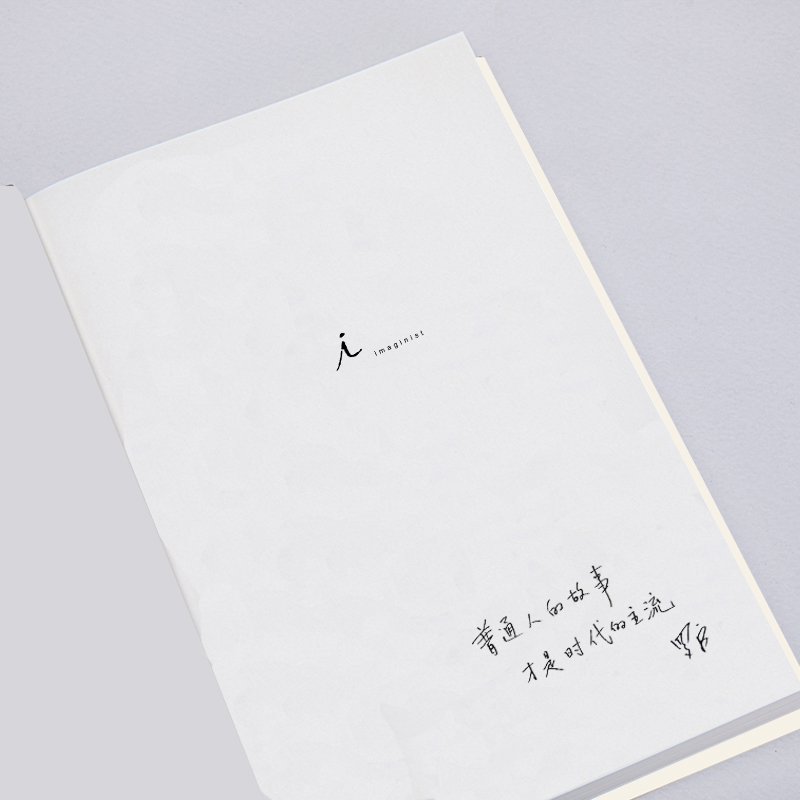 i imaginist
普通人的故事
才是时代的主流